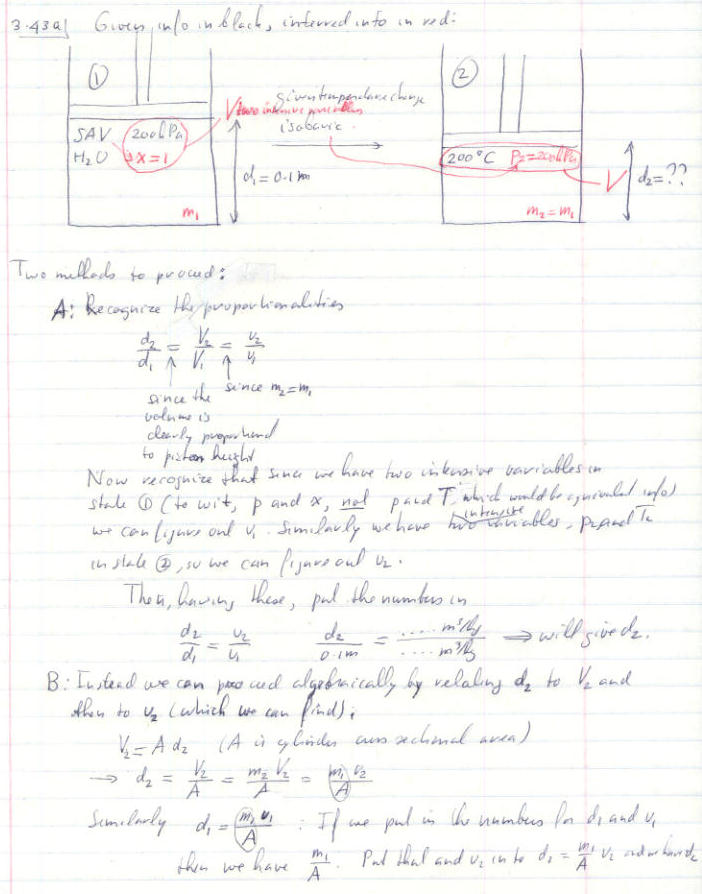 3.43a) Given info in black, inferred info in red:
①
②
given temperature change
two intensive variables
isobaric
SAV 200kPa
H₂O is x=1
d₁=0.1m
m₁
200°C P₂=200kPa
d₂=??
m₂=m₁
Two methods to proceed:
A: Recognize the proportionalities
d₂/d₁ = V₂/V₁ = v₂/v₁
since the
volume is
clearly proportional
to piston height
since m₂=m₁
Now recognize that since we have two intensive variables in
state ① (to wit, p and x, not p and T, which would be equivalent info)
we can figure out v₁. Similarly we have two intensive variables, p₂ and T₂
in state ②, so we can figure out v₂.
Then, having these, put the numbers in
d₂/d₁ = v₂/v₁ d₂/0.1m = ..... m³/kg / ..... m³/kg ⇒ will give d₂.
B: Instead we can proceed algebraically by relating d₂ to V₂ and
then to v₂ (which we can find);
V₂ = A d₂ (A is cylinder cross sectional area)
→ d₂ = V₂/A = m₂ v₂/A = m₁ v₂/A
Similarly d₁ = m₁ v₁/A : If we put in the numbers for d₁ and v₁
then we have m₁/A. Put that and v₂ in to d₂ = m₁/A v₂ and we have d₂